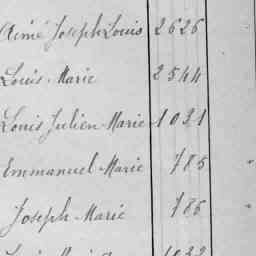 Aimé Joseph Louis 2626
Louis Marie 2544
Louis Julien Marie 1031
Emmanuel Marie 785
Joseph Marie 786